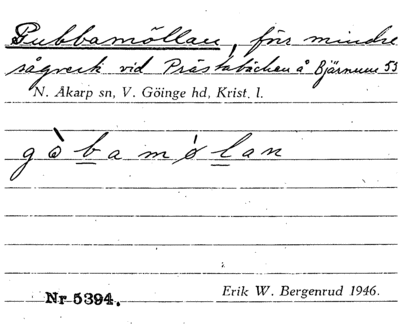 Gubbamöllan, förr mindre
sågverk vid Prästabäcken å Bjärnum 53
N. Åkarp sn, V. Göinge hd, Krist. l.
gòbamølan
Nr 5394.
Erik W. Bergenrud 1946.